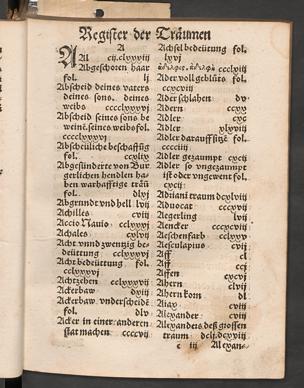 Register der Träumen
A
Aal cij. clxxxviij
Abgeschoren haar
fol. lj
Abscheid deines vaters
deines sons. deines
weibs cccclxxxvj
Abscheid seines sons be
weint. seines weibs fol.
cccclxxxvj
Abscheüliche beschaffūg
fol. ccxlix
Abgesünderte von Bur
gerlichen hendlen ha=
ben warhafftige träü
fol. dlvj
Abgrundt vnd hell lvij
Achilles cviij
Accio Nauio cclxxxvj
Achales cxlvj
Acht vnnd zwentzig be=
deüttung cclxxxvj
Acht bedeüttung fol.
cclxxxvj
Achtzehen cclxxxvij
Ackerbaw dxiij
Ackerbaw vnderscheidē
fol. dlv
Acker in einer anderen
statt machen ccccvij
Achsel bedeütung fol.
lxvj
ccclviij
Ader voll geblüts fol.
ccxcviij
Ader schlahen dv
Adern cccxv
Adler cxc
Adler xlxviij
Adler darauff sitzē fol.
ccccij
Adler gezaumpt cxcij
Adler so vngezaumpt
ist oder vngewent fol.
cxcij
Adriani traum dcxlviij
Aduocat cccxvij
Aegerling lvij
Aencker cccxcviij
Aeschenfarb cclxxv
Aesculapius vij
Aff cl
Aff ccj
Affen cxcvj
Ahern clvij
Ahern korn dl
Aiax cviij
Alexander cviij
Alexanders deß grossen
traum dclj. dcxviij
c iij Alexan=